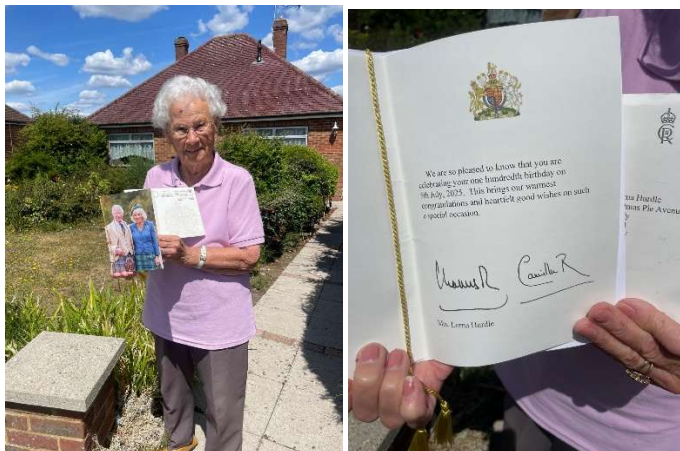 We are so pleased to know that you are
celebrating your one hundredth birthday on
9th July, 2025. This brings our warmest
congratulations and heartfelt good wishes on such
a special occasion.
Charles R
Camilla R
Mrs. Lorna Hardie
rna Hardie
mas Pie Avenue